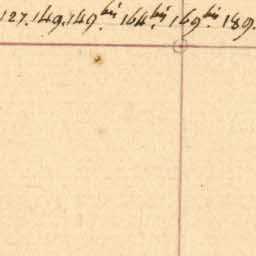 127. 149. 149 bis. 164 bis. 169 bis. 189.